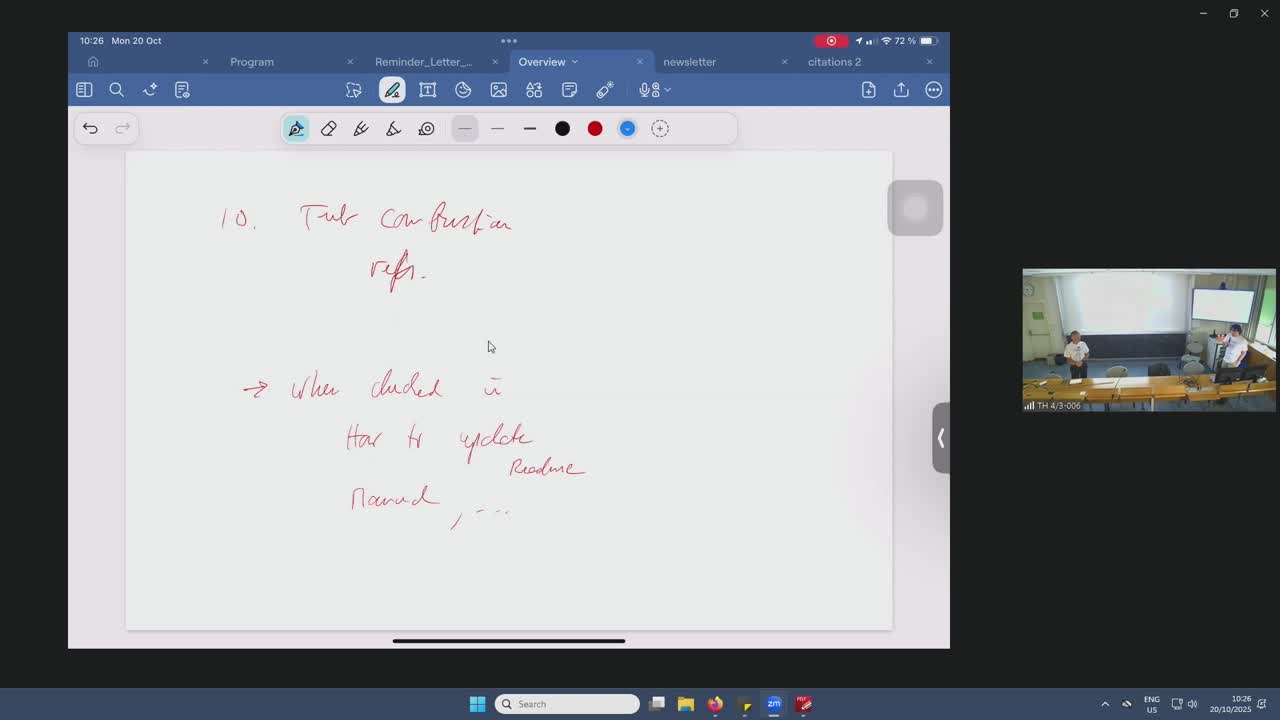 10:26 Mon 20 Oct
72 %
Program
Reminder_Letter_...
Overview
newsletter
citations 2
10.
refs.
→ when in
How to update
Readme
Manual, ...
TH 4/3-006
Search
ENG
US
10:26
20/10/2025